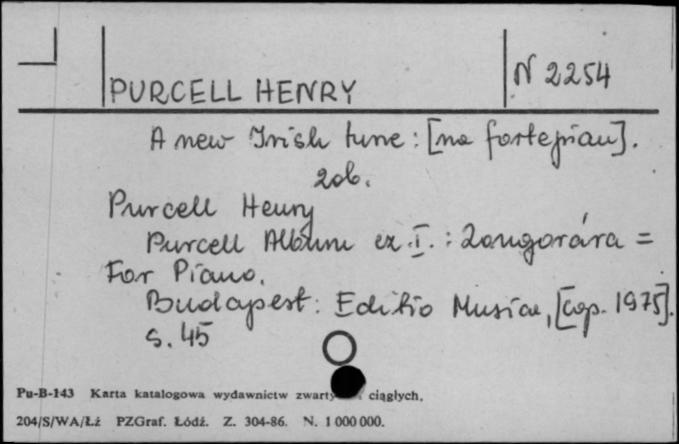 PURCELL HENRY
N 2254
A new Irish tune: [na fortepian].
zob.
Purcell Henry
Purcell Album ez. I. : Zongorára =
For Piano.
Budapest: Editio Musica, [cop. 1975].
S. 45
Pu-B-143 Karta katalogowa wydawnictw zwarty ciągłych.
204/S/WA/Łż PZGraf. Łódź. Z. 304-86. N. 1 000 000.